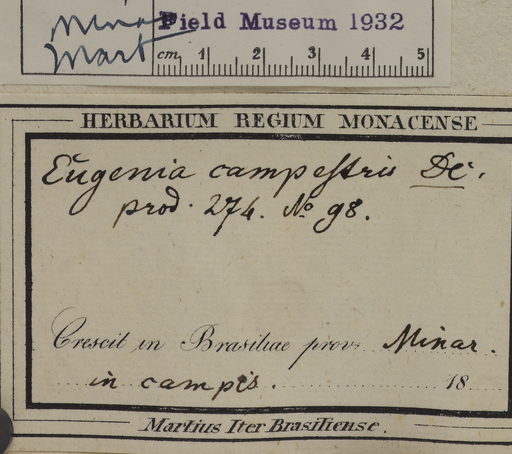 Minar
Mart
Field Museum 1932
cm 1 2 3 4 5
HERBARIUM REGIUM MONACENSE
Eugenia campestris DC.
prod. 274. No 98.
Crescit in Brasiliae prov. Minar.
in campis. 18
Martius Iter Brasiliense.